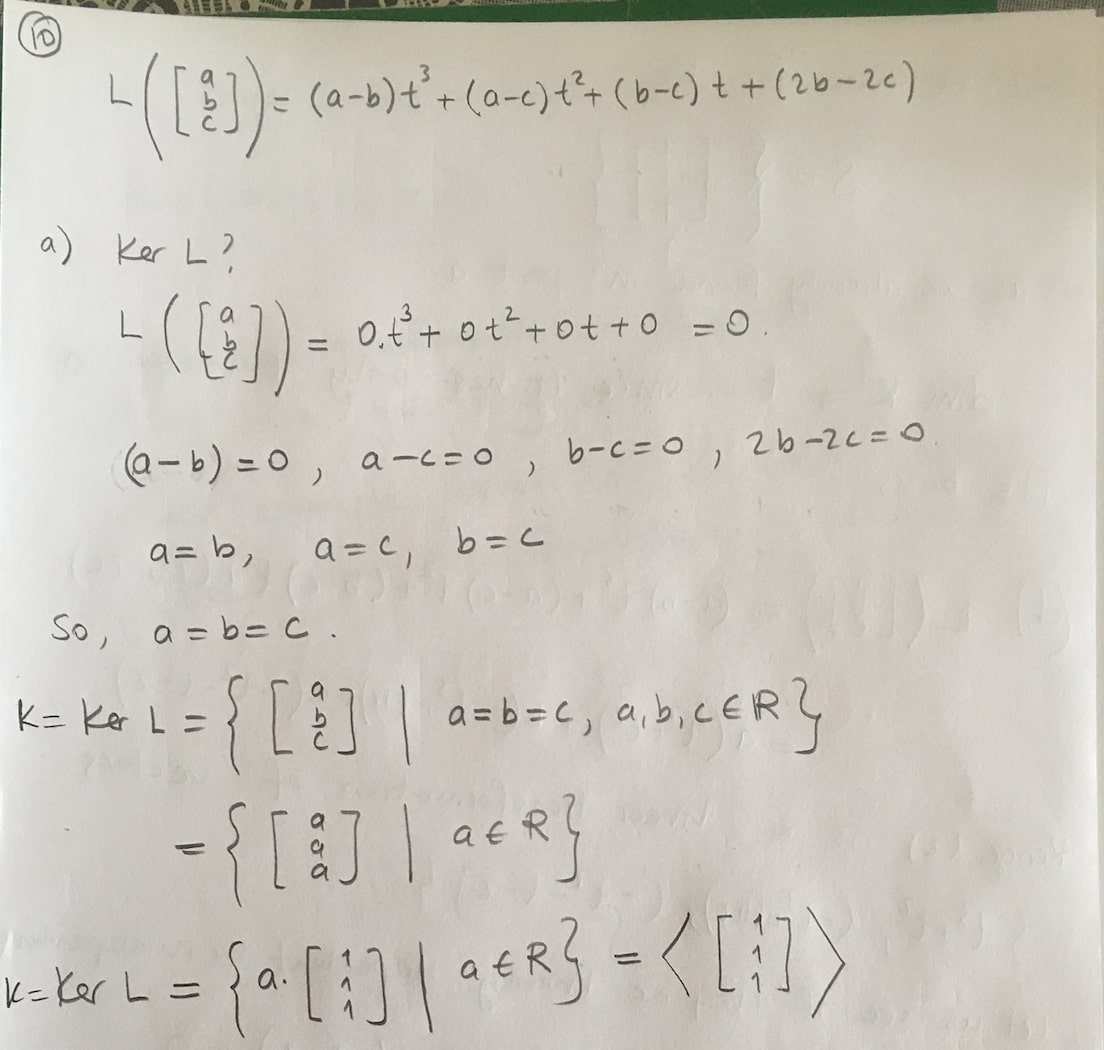 10
L([a b c]) = (a-b)t³ + (a-c)t² + (b-c)t + (2b-2c)
a) Ker L?
L([a b c]) = 0.t³ + 0t² + 0t + 0 = 0.
(a-b)=0, a-c=0, b-c=0, 2b-2c=0.
a=b, a=c, b=c
So, a=b=c.
K= Ker L = {[a b c] | a=b=c, a,b,c∈ℝ}
= {[a a a] | a∈ℝ}
K=Ker L = {a.[1 1 1] | a∈ℝ} = ⟨[1 1 1]⟩